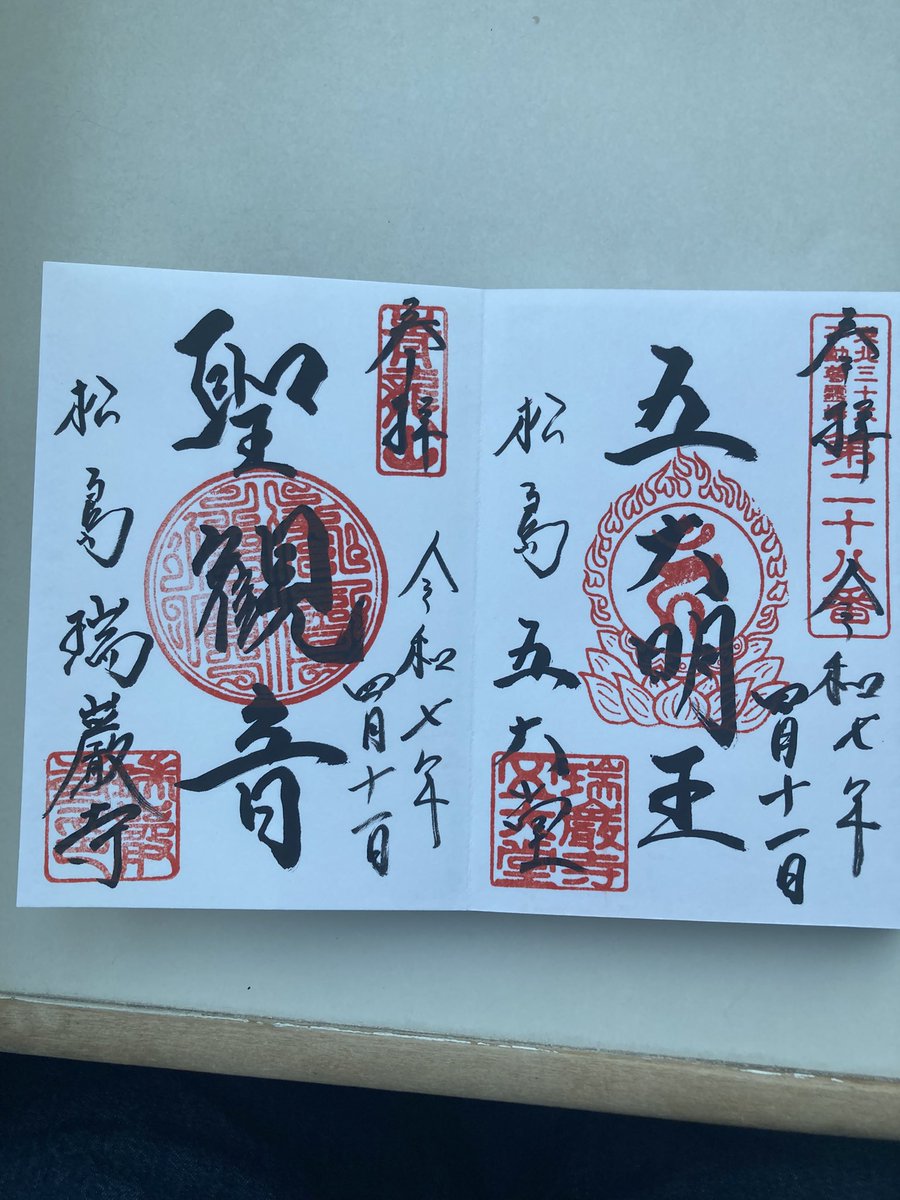 奉拝
第二十八番
令和七年
四月十一日
五大明王
松島 五大堂
瑞巌寺
五大堂
奉拝
青龍山
令和七年
四月十一日
聖観音
松島 瑞巌寺